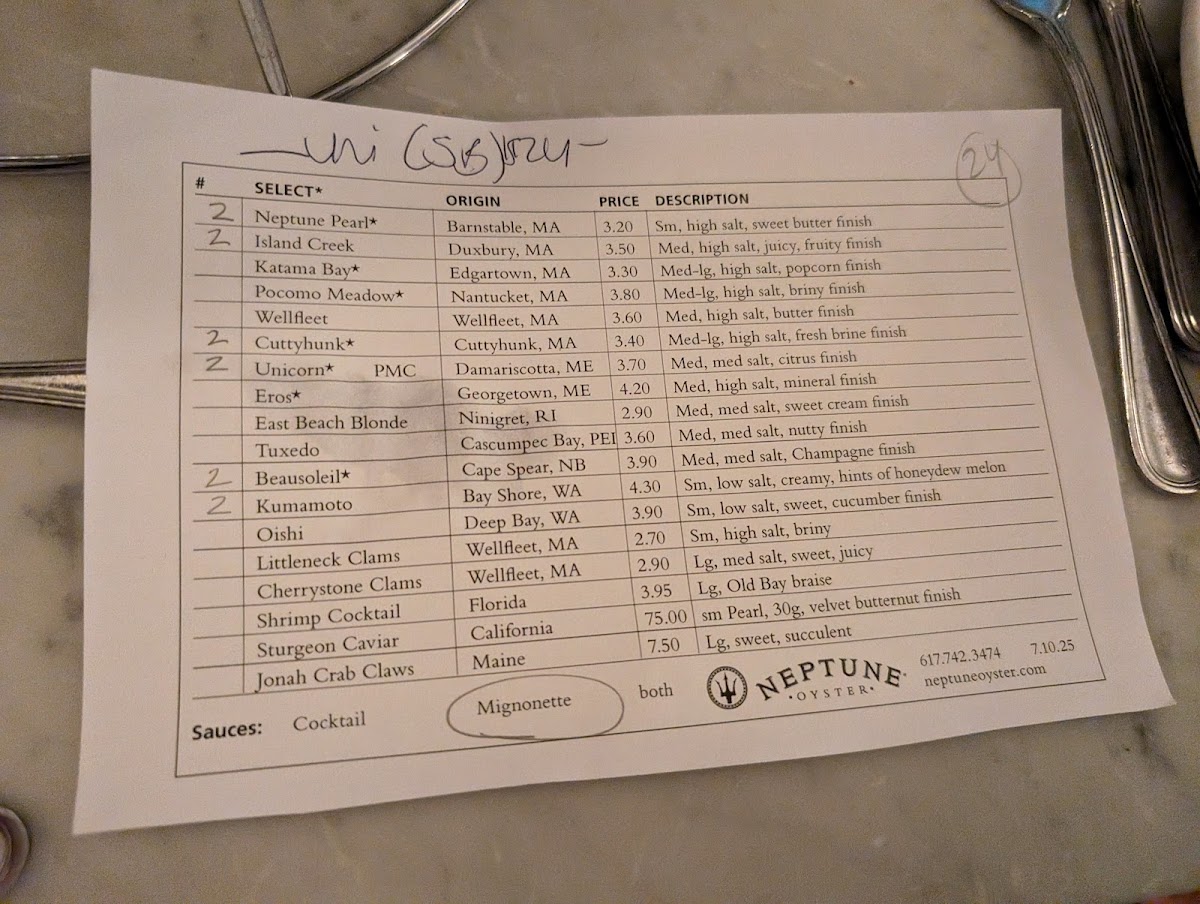 —Uni (SB) $24—
24
# SELECT* ORIGIN PRICE DESCRIPTION
2 Neptune Pearl★ Barnstable, MA 3.20 Sm, high salt, sweet butter finish
2 Island Creek Duxbury, MA 3.50 Med, high salt, juicy, fruity finish
Katama Bay★ Edgartown, MA 3.30 Med-lg, high salt, popcorn finish
Pocomo Meadow★ Nantucket, MA 3.80 Med-lg, high salt, briny finish
Wellfleet Wellfleet, MA 3.60 Med, high salt, butter finish
2 Cuttyhunk★ Cuttyhunk, MA 3.40 Med-lg, high salt, fresh brine finish
2 Unicorn★ PMC Damariscotta, ME 3.70 Med, med salt, citrus finish
Eros★ Georgetown, ME 4.20 Med, high salt, mineral finish
East Beach Blonde Ninigret, RI 2.90 Med, med salt, sweet cream finish
Tuxedo Cascumpec Bay, PEI 3.60 Med, med salt, nutty finish
2 Beausoleil★ Cape Spear, NB 3.90 Med, med salt, Champagne finish
2 Kumamoto Bay Shore, WA 4.30 Sm, low salt, creamy, hints of honeydew melon
Oishi Deep Bay, WA 3.90 Sm, low salt, sweet, cucumber finish
Littleneck Clams Wellfleet, MA 2.70 Sm, high salt, briny
Cherrystone Clams Wellfleet, MA 2.90 Lg, med salt, sweet, juicy
Shrimp Cocktail Florida 3.95 Lg, Old Bay braise
Sturgeon Caviar California 75.00 sm Pearl, 30g, velvet butternut finish
Jonah Crab Claws Maine 7.50 Lg, sweet, succulent
Sauces: Cocktail Mignonette both
NEPTUNE
•OYSTER•
617.742.3474 7.10.25
neptuneoyster.com